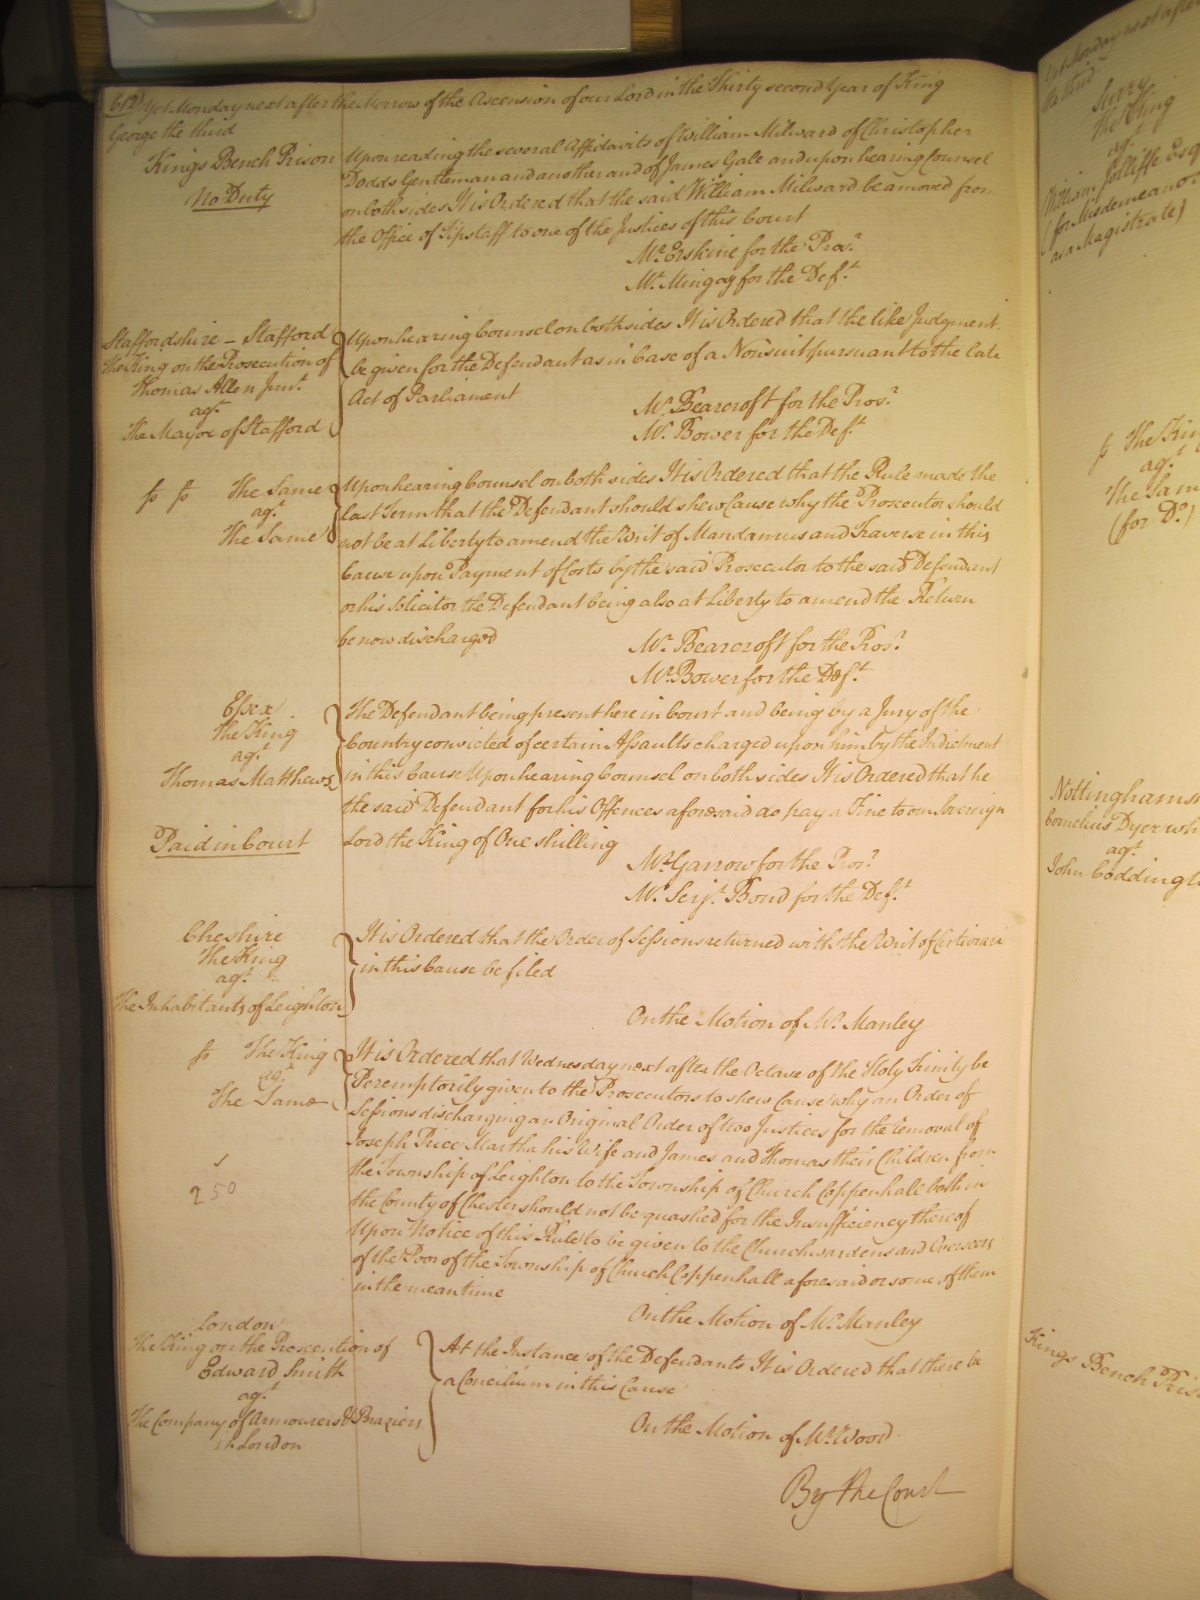 612) Yet Monday next after the Morrow of the Ascension of our Lord in the Thirty second Year of King
George the third
Kings Bench Prison
No Duty
Upon reading the several Affidavits of William Milward of Christopher
Dodds Gentleman and another and of James Gale and upon hearing Counsel
on both sides It is Ordered that the said William Milward be amoved from
the Office of Tipstaff to one of the Justices of this Court
Mr. Erskine for the Pros.r
Mr. Mingay for the Def.t
Staffordshire - Stafford
The King on the Prosecution of
Thomas Allen Junr.
agt.
The Mayor of Stafford
Upon hearing Counsel on both sides It is Ordered that the like Judgment
be given for the Defendant as in Case of a Nonsuit pursuant to the late
Act of Parliament
Mr. Bearcroft for the Pros.r
Mr. Bower for the Def.t
fs fs The Same
agt.
The Same
Upon hearing Counsel on both sides It is Ordered that the Rule made the
last Term that the Defendant should shew Cause why the Prosecutor should
not be at Liberty to amend the Writ of Mandamus and Traverse in this
Cause upon Payment of Costs by the said Prosecutor to the said Defendant
or his Solicitor the Defendant being also at Liberty to amend the Return
be now discharged
Mr. Bearcroft for the Pros.r
Mr. Bower for the Def.t
Essex
The King
agt.
Thomas Matthews
Paid in Court
The Defendant being present here in Court and being by a Jury of the
Country convicted of certain Assaults charged upon him by the Indictment
in this Cause Upon hearing Counsel on both sides It is Ordered that he
the said Defendant for his Offences aforesaid do pay a Fine to our Sovereign
Lord the King of One Shilling
Mr. Garrow for the Pros.r
Mr. Serjt. Bond for the Def.t
Cheshire
The King
agt.
The Inhabitants of Leighton
It is Ordered that the Order of Sessions returned with the Writ of Certiorari
in this Cause be filed
On the Motion of Mr. Manley
fs The King
agt.
The Same
250
It is Ordered that Wednesday next after the Octave of the Holy Trinity be
Peremptorily given to the Prosecutors to shew Cause why an Order of
Sessions discharging an Original Order of two Justices for the removal of
Joseph Price Martha his Wife and James and Thomas their Children from
the Township of Leighton to the Township of Church Coppenhall both in
the County of Chester should not be quashed for the Insufficiency thereof
Upon Notice of this Rule to be given to the Churchwardens and Overseers
of the Poor of the Township of Church Coppenhall aforesaid or some of them
in the mean time
On the Motion of Mr. Manley
London
The King on the Prosecution of
Edward Smith
agt.
The Company of Armourers & Braziers
in London
At the Instance of the Defendants It is Ordered that there be
a Concilium in this Cause
On the Motion of Mr. Wood
By the Court
Surry
The King
agt.
William Jolliffe Esq
(for Misdemeanor
as a Magistrate)
fs The Kin
agt.
The Sam
(for Do.)
Nottinghams
Cornelius Dyer wh
agt.
John Coddingt
Kings Bench Pris